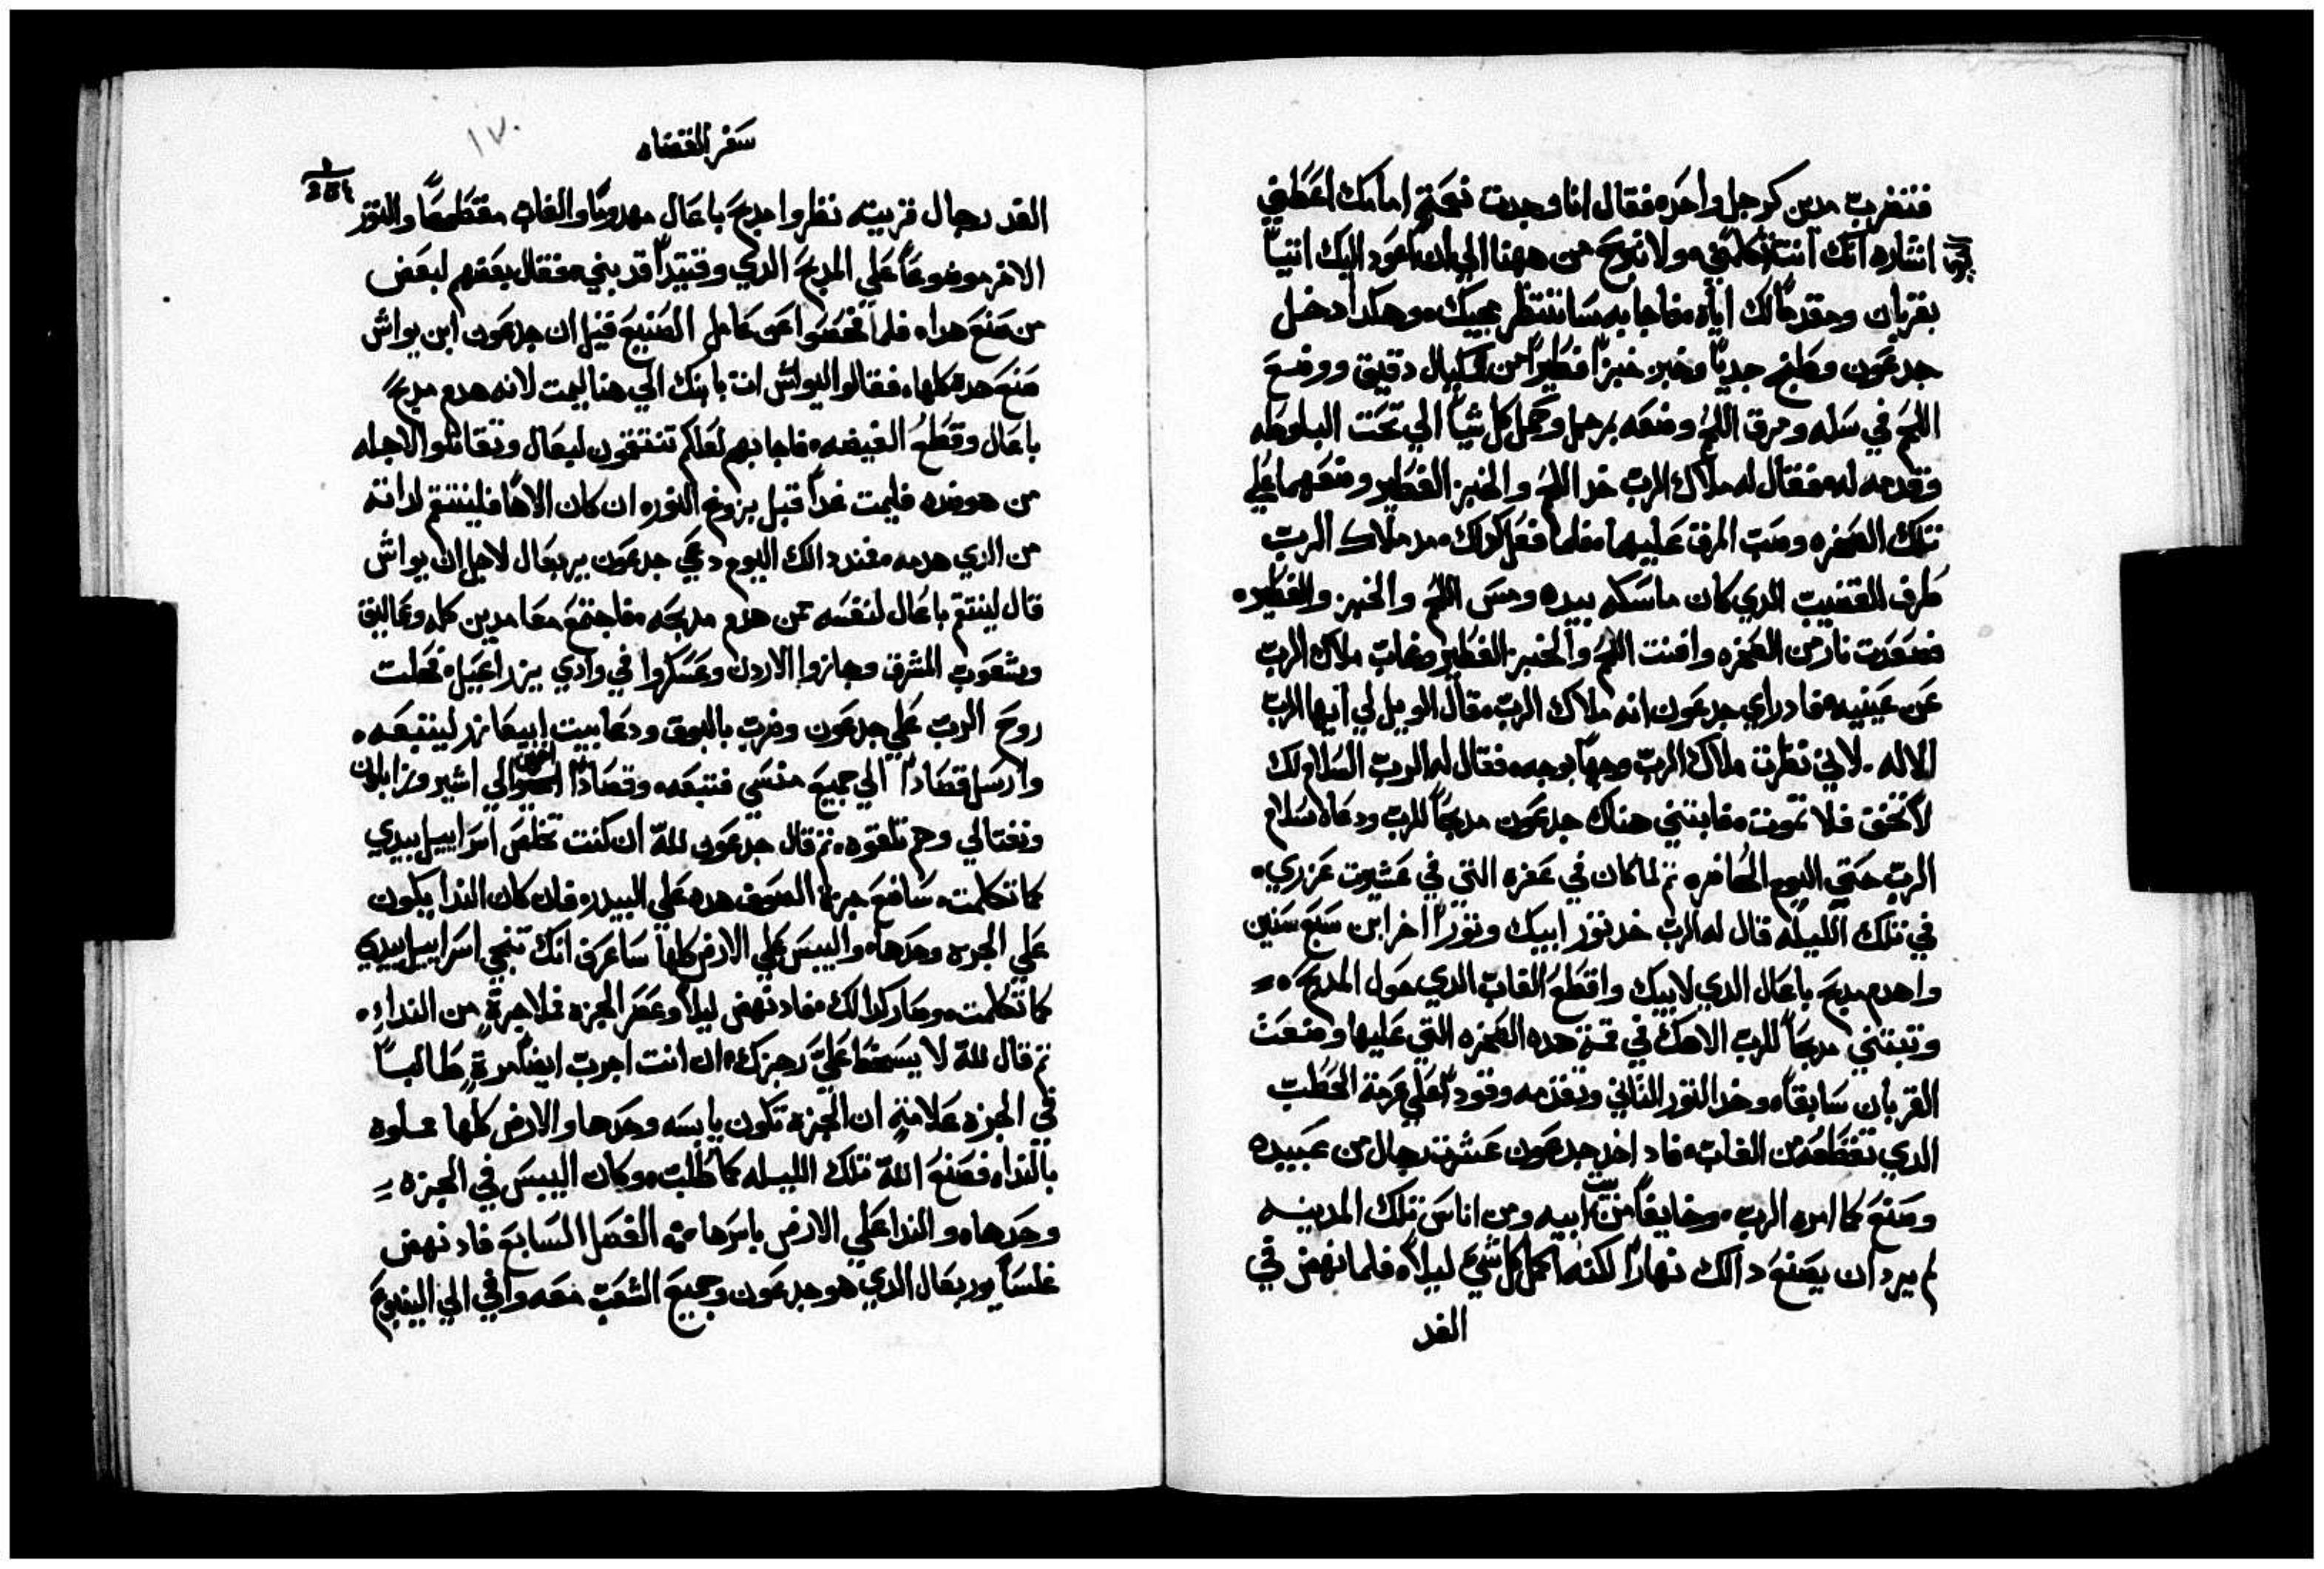 فتضرب مدين كرجل واحد، فقال انا وجدت نعمة امامك اعطني
اشاره انك انت تكلمني، ولا تبرح من ههنا الي ان اعود اليك اتياً
بقربان ومقدماً لك اياه، فاجابه سانتظر مجيك، وهكدا دخل
جدعون وطبخ جدياً وخبز خبزاً فطيراً من مكيال دقيق ووضع
اللحم في سله ومرق اللحم وضعه ببرمه وحمل كل شياً الي تحت البلوطه
وقدمه له، فقال له ملاك الرب خد اللحم والخبز الفطير وضعهما علي
تلك الصخره وصب المرق عليهما، فلما فعل كدلك مد ملاك الرب
طرف القضيب الدي كان ماسكه بيده ومس اللحم والخبز والفطير،
فصعدت نار من الصخره وافنت اللحم والخبز الفطير وغاب ملاك الرب
عن عينيه، فاد راي جدعون انه ملاك الرب، قال الويل لي ايها الرب
الاله. لاني نظرت ملاك الرب وجهاً بوجه، فقال له الرب السلام لك
لا تخف فلا تموت، فابتني هناك جدعون مدبحاً للرب ودعاه سلام
الرب حتي اليوم الحاضر، ثم لما كان في عفره التي في عشيرت عزري،
في تلك الليله قال له الرب خد ثور ابيك وثوراً اخر ابن سبع سنين
واهدم مدبح باعال الدي لابيك واقطع الغاب الدي حول المدبح،
وتبتني مدبحاً للرب الاهك في قمة هده الصخره التي عليها وضعت
القربان سابقاً، وخد الثور الثاني وتقدمه وقوداً علي عرمة الحطب
الدي تقطعه من الغاب، فاد اخد جدعون عشرة رجال من عبيده
وصنع كما امره الرب، وخايفاً من بيت ابيه ومن اناس تلك المدينه
لم يرد ان يصنع دالك نهاراً لكنه اكمل كل شي ليلاً، فلما نهض في
الغد
سفر القضاه
١٧٠
الغد رجال قريته نظروا مدبح باعال مهدوماً والغاب مقطعاً والثور
الاخر موضوعاً علي المدبح الدي وقتيداً قد بني، فقال بعضهم لبعض
من صنع هدا، فلما فحصوا عن عامل الصنيع قيل ان جدعون ابن يواش
صنع هده كلها، فقالوا ليواش ائت بابنك الي هنا ليمت لانه هدم مدبح
باعال وقطع الغيضه، فاجابهم لعلكم تنتقمون لبعال وتقاتلوا لاجله
من هو ضده فليمت غداً قبل بزوغ النور، ان كان الاهاً فلينتقم لداته
من الدي هدمه، فمند دالك اليوم دعي جدعون يربعال لاجل ان يواش
قال لينتقم باعال لنفسه ممن هدم مدبحه، فاجتمع معا مدين كله وعماليق
وشعوب المشرق وجازوا الاردن وعسكروا في وادي يزراعيل، فحلت
روح الرب علي جدعون وضرب بالبوق ودعا بيت ابيعازر ليتبعه،
وارسل قصاداً الي جميع منسي فتبعه، وقصاداً اخرين الي اشير وزابلون
ونفتالي وهم تلقوه، ثم قال جدعون لله ان كنت تخلص اسراييل بيدي
كما تكلمت، ساضع جزة الصوف هده علي البيدر، فان كان الندا يكون
علي الجزه وحدها، واليبس علي الارض كلها ساعرف انك تنجي اسراييل بيدي
كما تكلمت، وصار كدالك، فاد نهض ليلاً وعصر الجزه فملا جرةً من النداء،
ثم قال لله لا يسخط علي رجزك، ان انت اجرب ايضاً مرةً طالباً
في الجزه علامةٍ ان الجزه تكون يابسه وحدها والارض كلها مملوه
بالندا، فصنع الله تلك الليله كما طلب، وكان اليبس في الجزه
وحدها، والندا علي الارض باسرها، الفصل السابع فاد نهض
غلساً يوربعال الدي هو جدعون وجميع الشعب معه وافي الي الينبوع